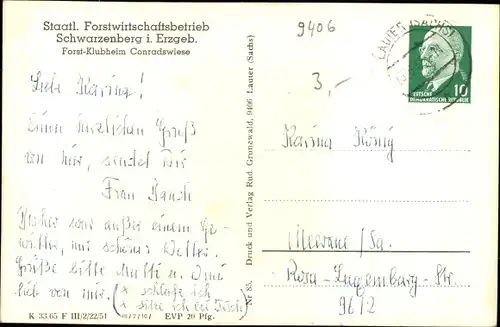 Staatl. Forstwirtschaftsbetrieb
Schwarzenberg i. Erzgeb.
Forst-Klubheim Conradswiese
9406
3,-
LAUTER (SACHS)
10
DEUTSCHE
DEMOKRATISCHE REPUBLIK
Liebe Karina!
Einen herzlichen Gruß
von hier, sendet Dir
Frau
Bisher war außer einem Ge-
witter, nur schönes Wetter.
Grüße bitte Mutti u. Omi
lieb von mir. (x schlafe ich
x sitze ich bei Tisch)
Nr 85 Druck und Verlag Rud. Grunewald, 9406 Lauter (Sachs)
Karina König
Meerane/Sa.
Rosa-Luxemburg-Str.
9612
K 33.65 F III/2/22/51
EVP 20 Pfg.